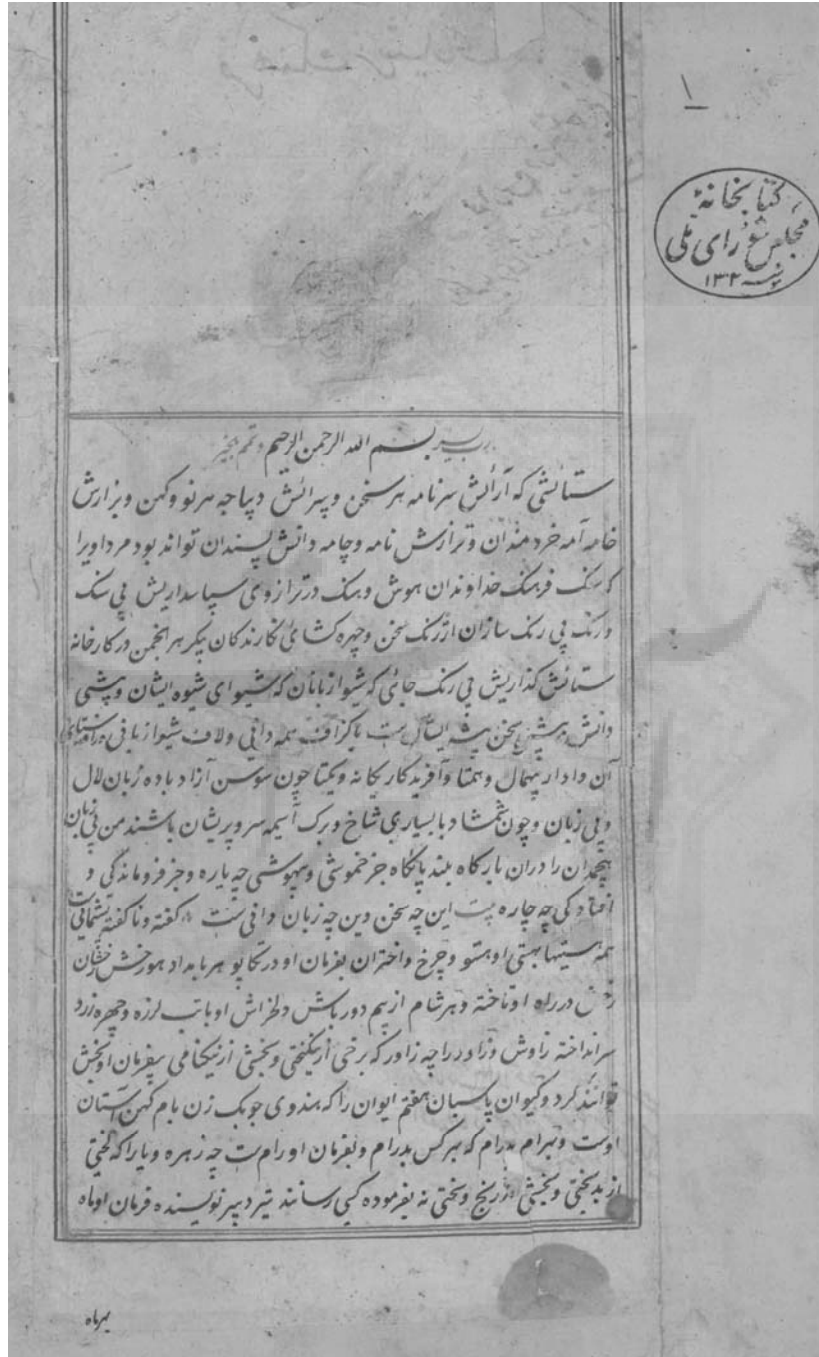 ۱
کتابخانهٔ
مجلس شورای ملی
۱۳۲
رب یسر بسم الله الرحمن الرحیم و تمم بخیر
ستائشی که آرائش سرنامه هر سخن و پیرائش دیباجه هر نو و کهن و برازش
خامه آمه خردمندان و ترازش نامه و چامه دانش پسندان تواند بود مر داویرا
که سنک فرهنک خداوندان هوش و هنک در ترازوی سپاسداریش بی سنک
و رنک بی رنک سازان ارژنک سخن و چهره کشائی نکارندکان پیکر هر انجمن در کارخانه
ستائش کذاریش بی رنک جائی که شیوا زبانان که شیوای شیوه ایشان و پیشی
دانش سخن پیشه ایشان ست با کزاف همه دانی و لاف شیوا زبانی
آن دادار بیهمال و همتا و آفریدکار یکانه و یکتا چون سوسن آزاد با ده زبان لال
و بی زبان و چون شمشاد با بسیاری شاخ و برک آسیمه سر و پریشان باشند من بی زبان
هیچمدان را دران بارکاه بلند پایکاه جز خموشی و بیهوشی چه یاره و جز فروماندکی و
افتادکی چه چاره این چه سخن وین چه زبان دانی ست کفته و ناکفته پشیمانی ست
همه هستیها بهستی او هستو و چرخ و اختران بفرمان او در تکاپو هر بامداد هور رخشان
رخش در راه او تاخته و هر شام از بیم دورباش دلخراش او با تب لرزه و چهره زرد
سر انداخته زاوش و زاور را چه زاور که برخی از نیکبختی و بخشی از نیکنامی بیفرمان او بخش
توانند کرد و کیوان پاسبان هفتم ایوان را که هندوی چوبک زن بام کهن آستان
اوست و بهرام بدرام که بهر کس بدرام و بفرمان او رام ست چه زهره و یارا که لختی
از بدبختی و بخشی از رنج و سختی نه بفرموده کسی رسانند تیر دبیر نویسنده فرمان او ماه
بهرماه